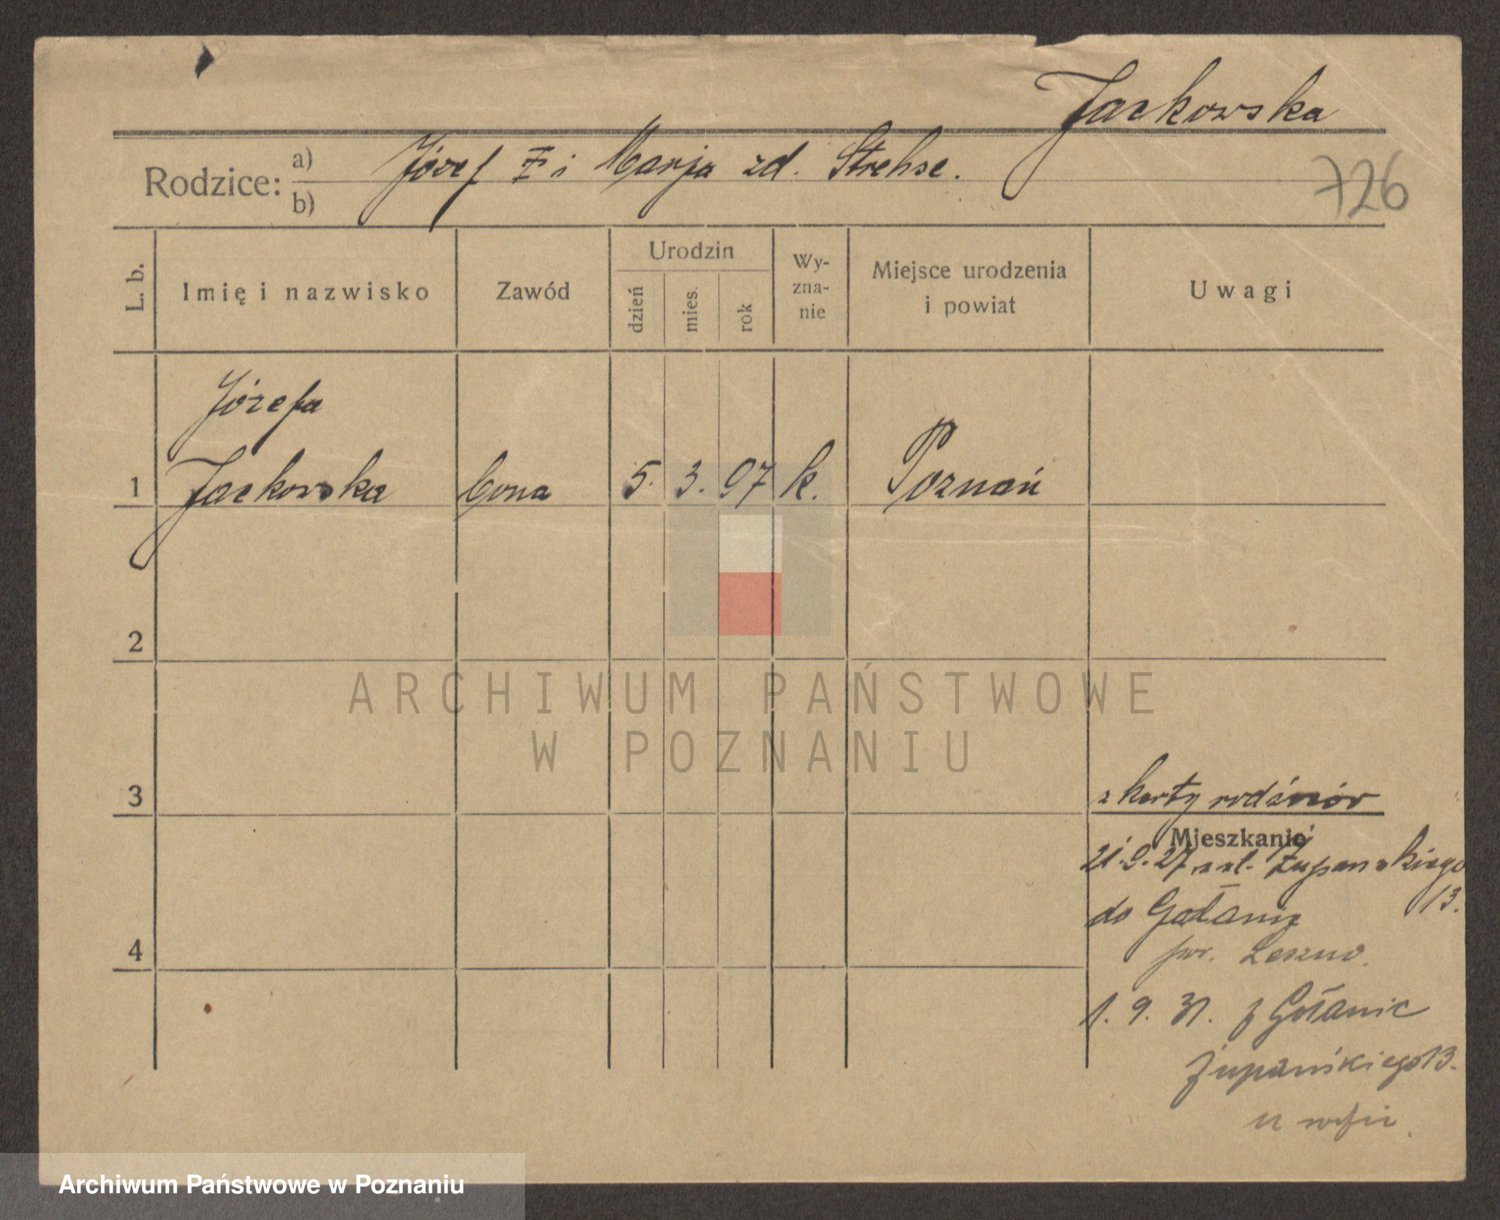 Jackowska
Rodzice: a) b)
Józef i Marja zd. Strehse.
726
L. b.
Imię i nazwisko
Zawód
Urodzin
dzień
mies.
rok
Wy-
zna-
nie
Miejsce urodzenia
i powiat
Uwagi
Józefa
1 Jackowska córa 5. 3. 97 k. Poznań
2
ARCHIWUM PAŃSTWOWE
W POZNANIU
3
z karty rodziców
Mieszkanie
21.9.27 z ul. Żupańskiego
13.
do Gołanic
4
pow. Leszno.
1. 9. 31. z Gołanic
Żupańskiego 13.
Archiwum Państwowe w Poznaniu